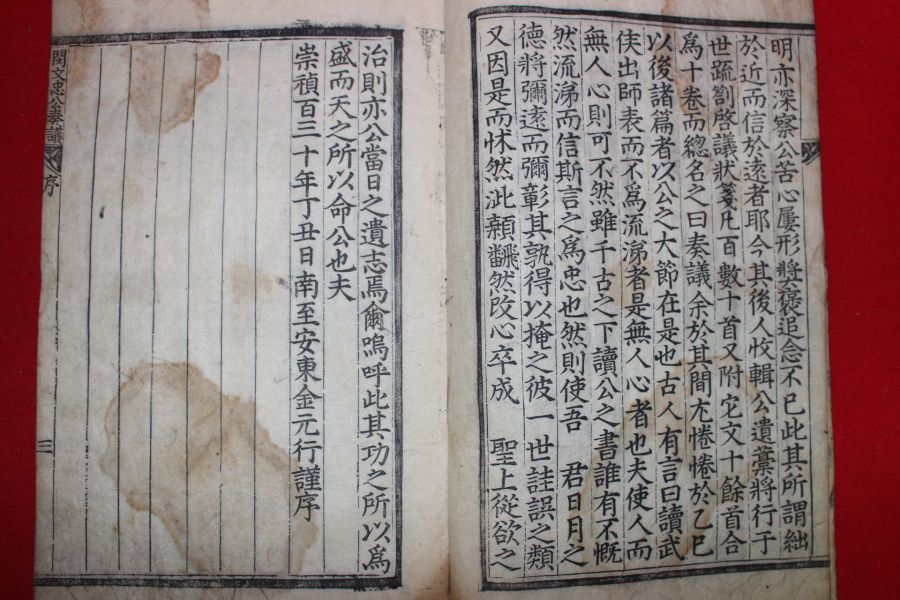 明亦深察公苦心屢形奬褒追念不已此其所謂絀
於近而信於遠者耶今其後人收輯公遺藁將行于
世疏劄啓議狀箋凡百數十首又附它文十餘首合
爲十卷而緫名之曰奏議余於其間尤惓惓於乙巳
以後諸篇者以公之大節在是也古人有言曰讀武
侯出師表而不爲流涕者是無人心者也夫使人而
無人心則可不然雖千古之下讀公之書誰有不慨
然流涕而信斯言之爲忠也然則使吾 君日月之
德將彌遠而彌彰其孰得以掩之彼一世詿誤之類
又因是而怵然泚顙飜然改心卒成 聖上從欲之
治則亦公當日之遺志焉爾嗚呼此其功之所以爲
盛而天之所以命公也夫
崇禎百三十年丁丑日南至安東金元行謹序
閔文忠公奏議 序 三